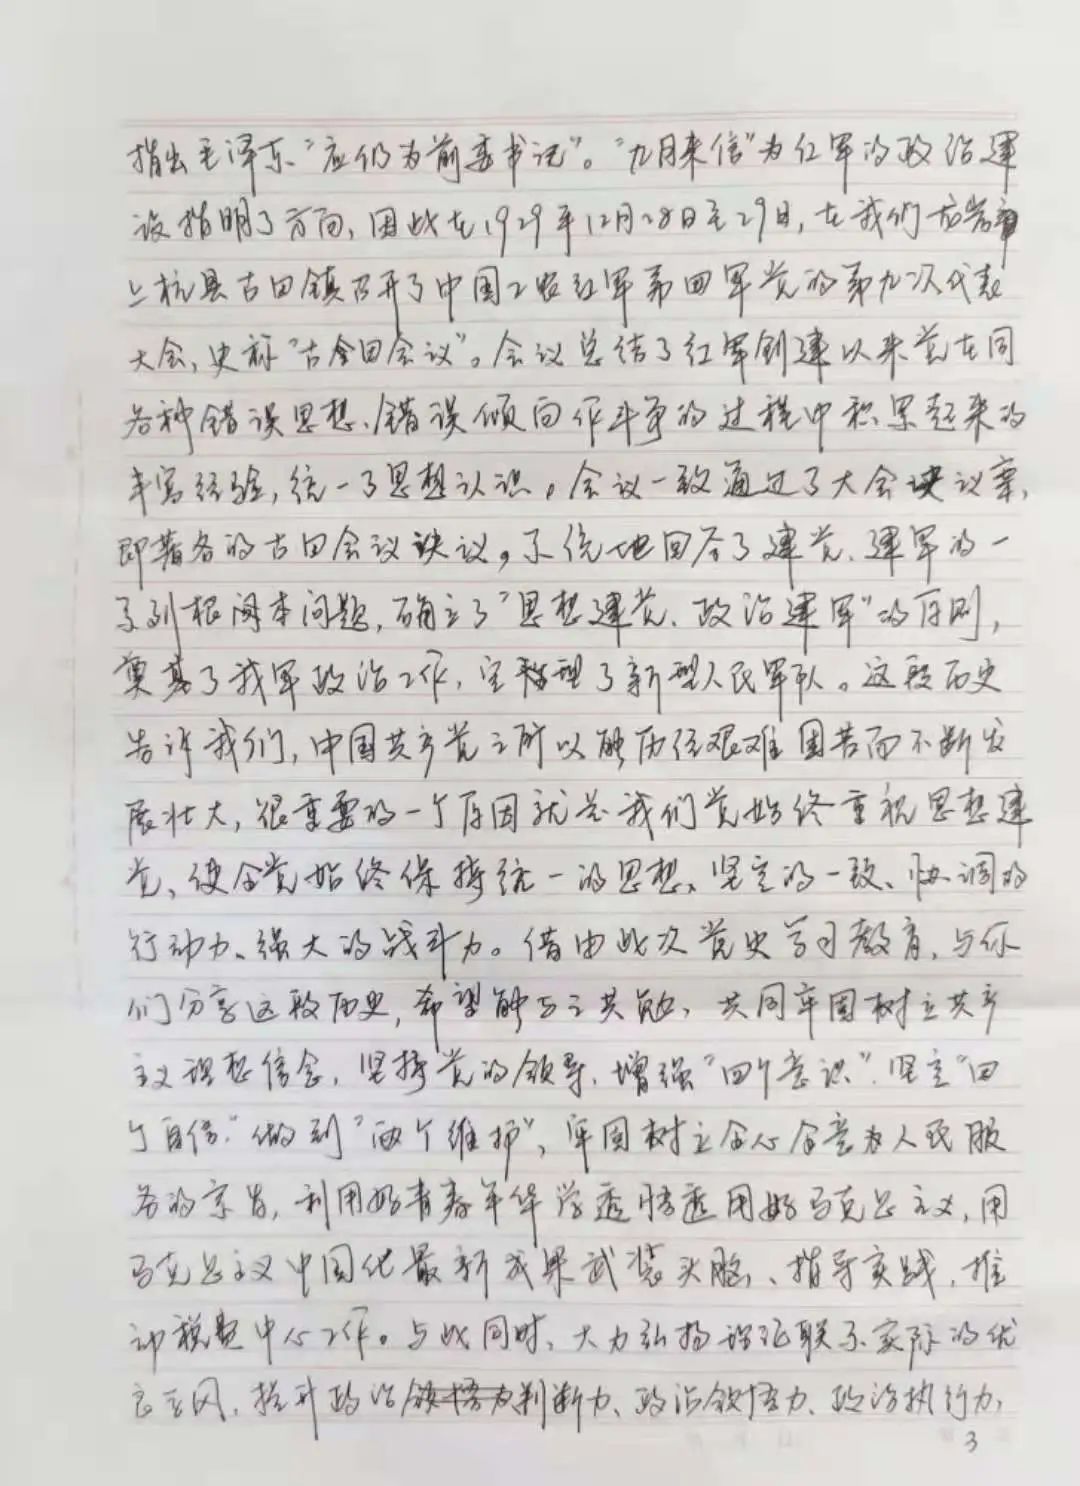 指出毛泽东“应仍为前委书记”。“九月来信”为红军的政治建
设指明了方向，因此在1929年12月28日至29日，在我们
上杭县古田镇召开了中国工农红军第四军党的第九次代表
大会，史称“古田会议”。会议总结了红军创建以来党在同
各种错误思想、错误倾向作斗争的过程中积累起来的
丰富经验，统一了思想认识。会议一致通过了大会决议案，
即著名的古田会议决议。系统地回答了建党、建军的一
系列根本问题，确立了“思想建党、政治建军”的原则，
奠基了我军政治工作，定型了新型人民军队。这段历史
告诉我们，中国共产党之所以能历经艰难困苦而不断发
展壮大，很重要的一个原因就是我们党始终重视思想建
党，使全党始终保持统一的思想、坚定的一致、协调的
行动力、强大的战斗力。借由此次党史学习教育，与你
们分享这段历史，希望能与之共勉，共同牢固树立共产
主义理想信念，坚持党的领导，增强“四个意识”，坚定“四
个自信”，做到“两个维护”，牢固树立全心全意为人民服
务的宗旨，利用好青春年华学透悟透用好马克思主义，用
马克思主义中国化最新成果武装头脑、指导实践，推
动税费中心工作。与此同时，大力弘扬理论联系实际的优
良之风，提升政治判断力、政治领悟力、政治执行力，
3